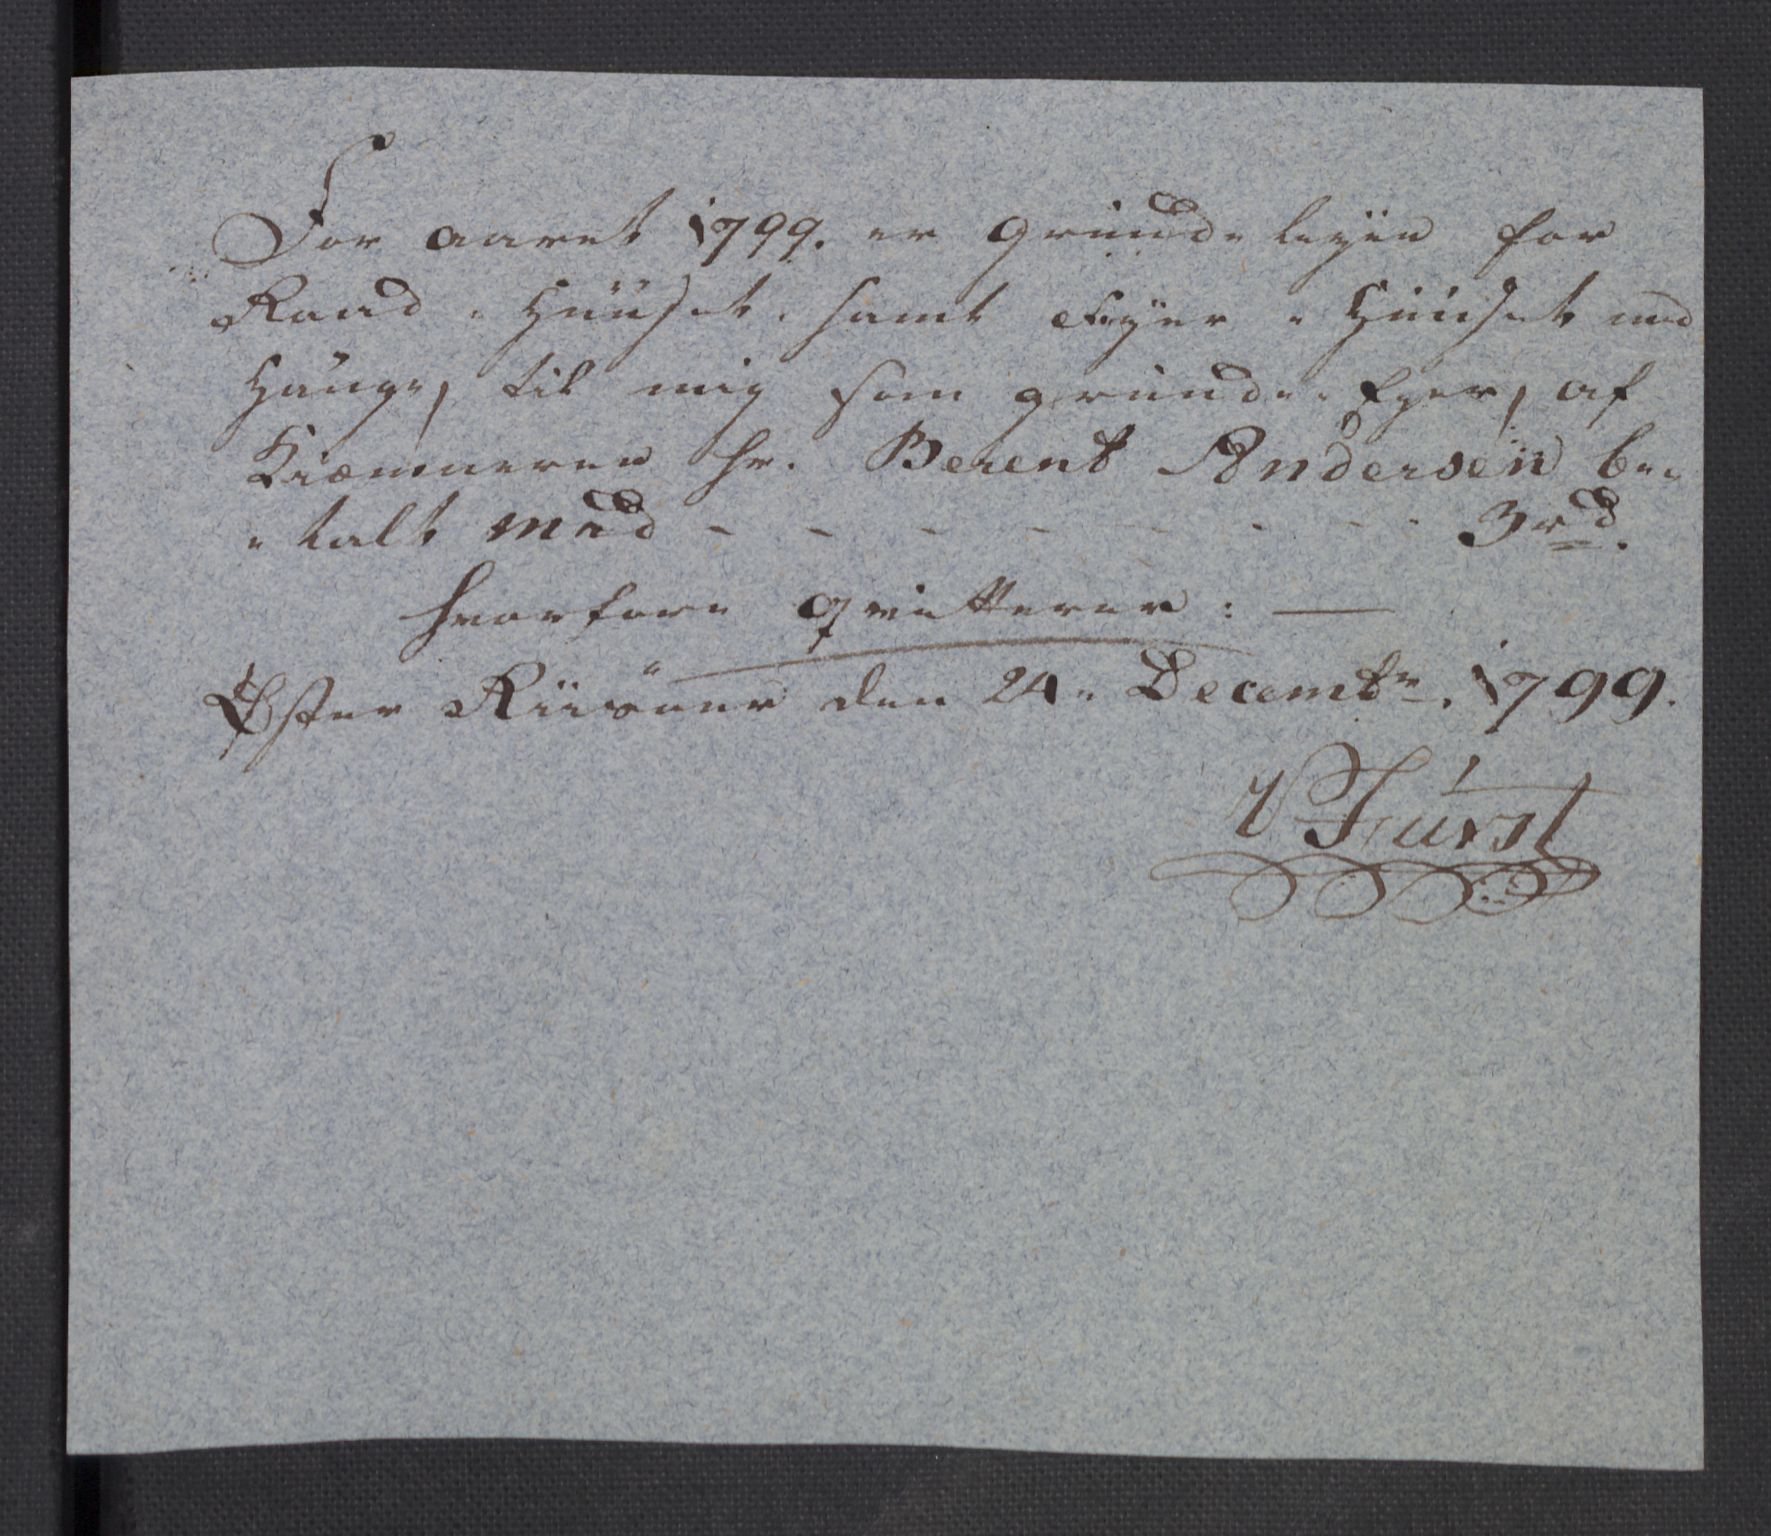 For aaret 1799. er Grunde leyen for
Raad-Huuset, samt Fyer-Huuset med
Hauge, til mig som grunde-Eyer, af
Kiæmneren Hr. Berent Andersen be-
-talt med - - - - - - - 3 rd.
hvorfore qvitterer: —
Øster Riisöer den 24. Decembr. 1799.
Fürst